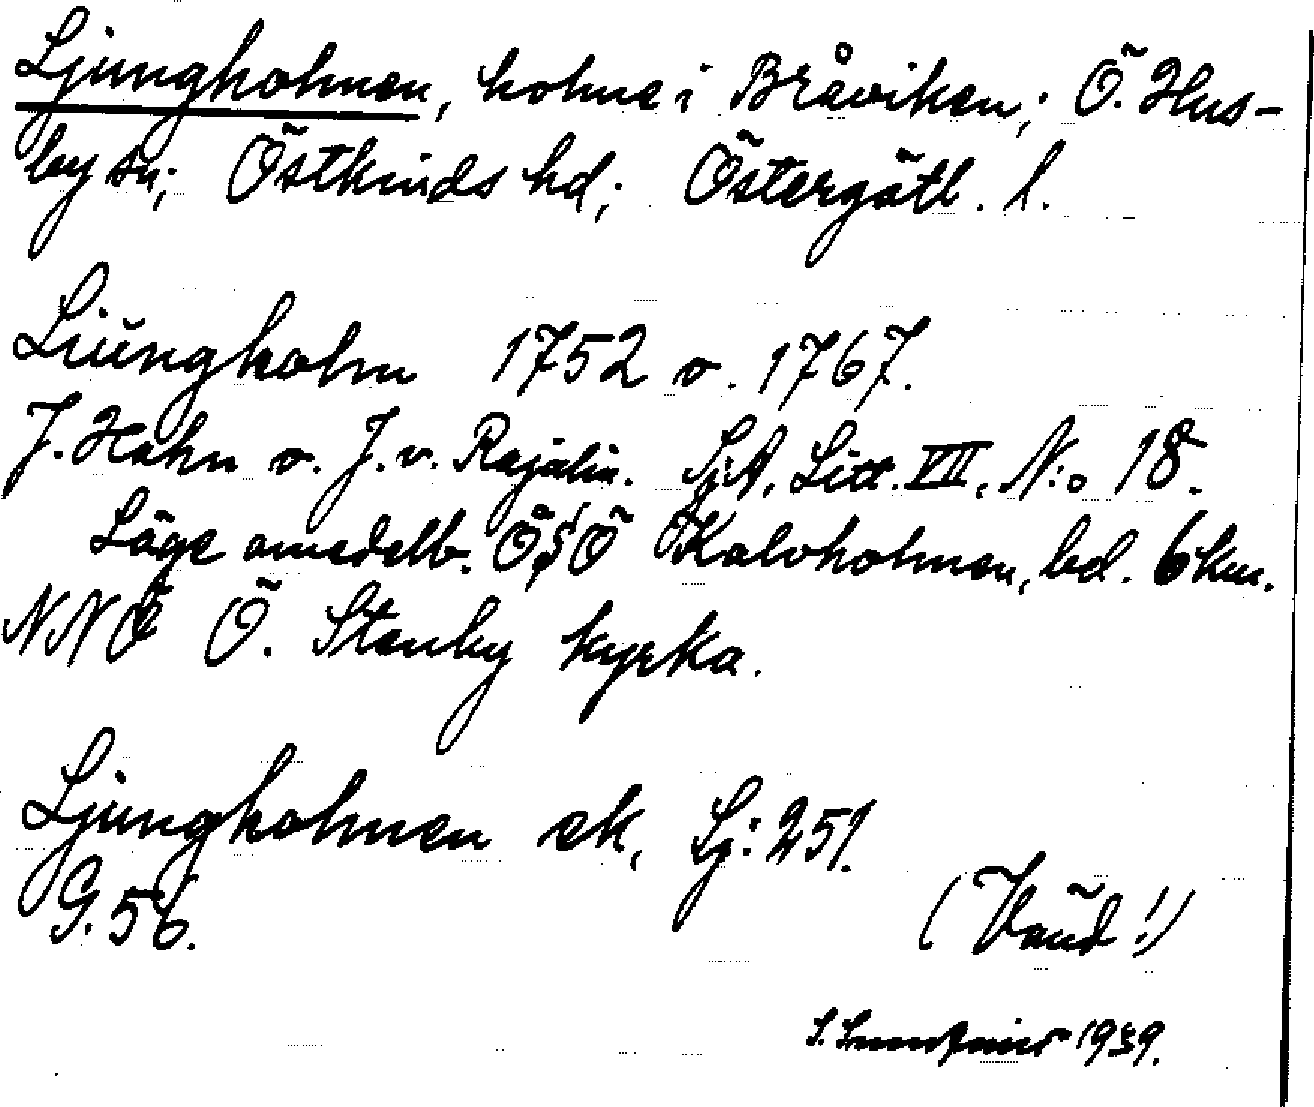 Ljungholmen, holme i Bråviken; Ö. Hus-
by sn; Östkinds hd; Östergötl. l.
Liŭngholm 1752 o. 1767.
J. Hahn o. J. v. Rajalin. Sj:A. Litt. VII. N:o 18.
Läge omedelb. ÖSÖ Kalvholmen, bd. 6 km.
NNÖ Ö. Stenby kyrka.
Ljungholmen ek. Sj: 251.
G. 56.
(Vänd!)
1939.